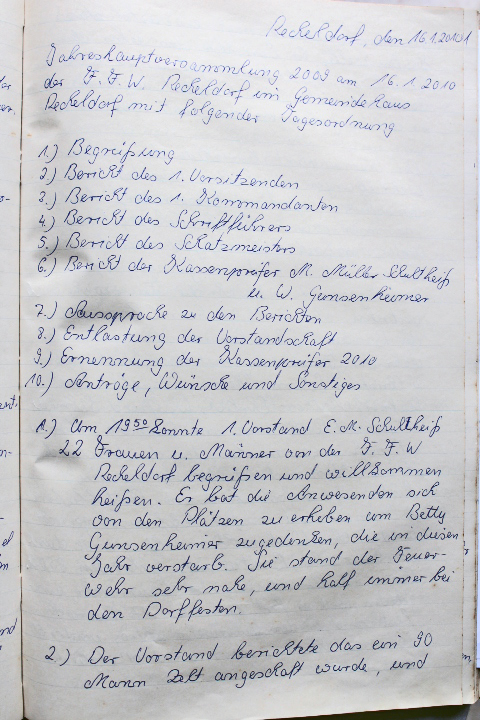 Reckeldorf, den 16.1.2010
Jahreshauptversammlung 2009 am 16.1.2010
der F.F.W. Reckeldorf im Gemeindehaus
Reckeldorf mit folgender Tagesordnung
1.) Begrüßung
2.) Bericht des 1. Vorsitzenden
3.) Bericht des 1. Kommandanten
4.) Bericht des Schriftführers
5.) Bericht des Schatzmeisters
6.) Bericht der Kassenprüfer M. Müller-Schultheiß
u. W. Gunsenheimer
7.) Aussprache zu den Berichten
8.) Entlastung der Vorstandschaft
9.) Ernennung der Kassenprüfer 2010
10.) Anträge, Wünsche und Sonstiges
1.) Um 19⁵⁰ konnte 1. Vorstand E. M. Schultheiß
22 Frauen u. Männer von der F.F.W
Reckeldorf begrüßen und willkommen
heißen. Er bat die Anwesenden sich
von den Plätzen zu erheben um Betty
Gunsenheimer zugedenken, die in diesen
Jahr verstarb. Sie stand der Feuer-
wehr sehr nahe, und half immer bei
den Dorffesten.
2.) Der Vorstand berichtete das ein 90
Mann Zelt angeschaft wurde, und